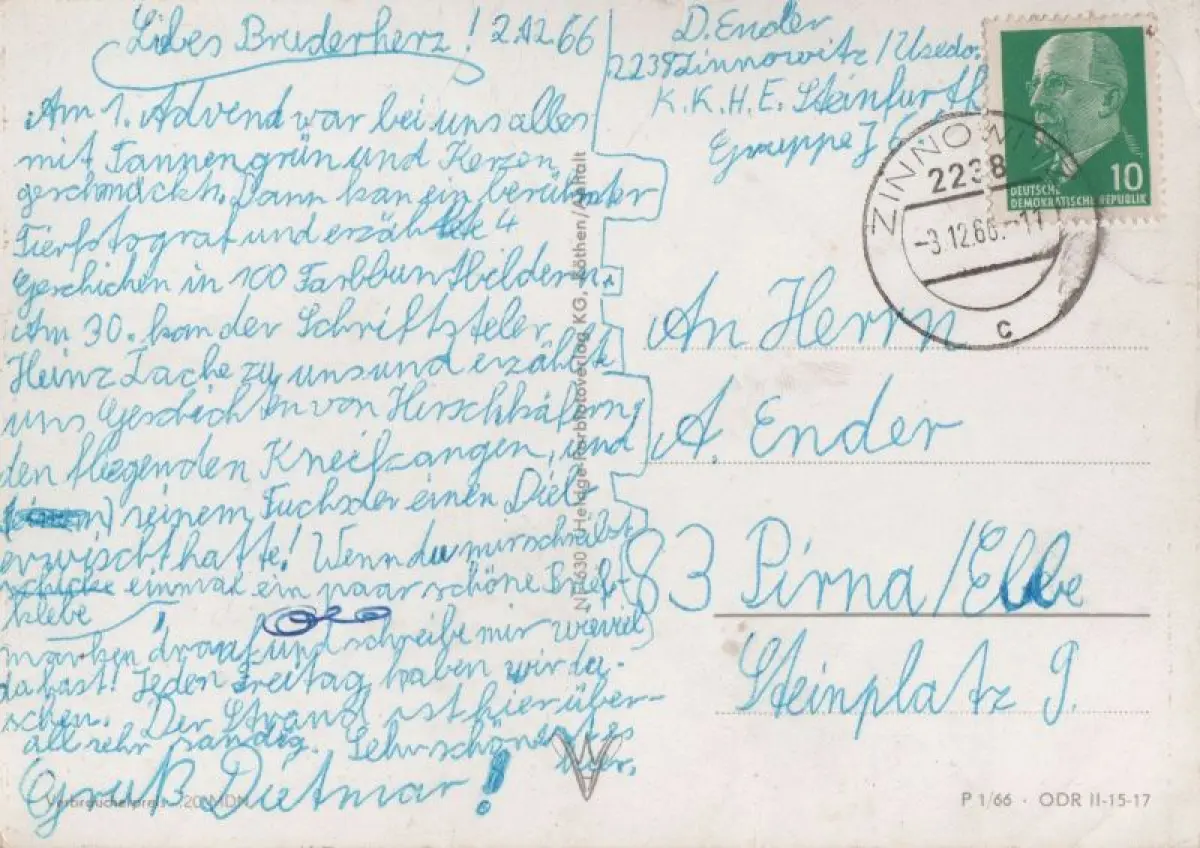 Liebes Bruderherz! 2.12.66
Am 1. Advend war bei uns alles
mit Tannengrün und Kerzen
geschmückt. Dann kan ein berühmter
Tierfotograf und erzählte 4
Geschichen in 100 Farbbuntbildern.
Am 30. kan der Schriftsteler
Heinz Lache zu uns und erzählte
uns Geschichten von Hirschkäfern,
den fliegenden Kneifzangen, und
seinem Fuchs der einen Dieb
erwischt hatte! Wenn du mir schreibst
schicke einmal ein paar schöne Brief-
klebe
marken drauf und schreibe mir wieviel
da hast! Jeden Freitag haben wir du-
schen. Der Strand ist hier über-
all sehr sandig. Sehr schön ist es
hier.
Gruß Dietmar!
D. Ender
2238 Zinnowitz/Usedo.
K.K.H.E. Steinfurth
Gruppe J 6
DEUTSCHE
DEMOKRATISCHE REPUBLIK
10
ZINNOWITZ
2238
-3.12.66.-17
c
An Herrn
A. Ender
83 Pirna/Elbe
Steinplatz 9.
Heldge-Farbfotoverlag KG, Köthen/Anhalt
Verbraucherpreis 20 MDN
P 1/66 · ODR II-15-17